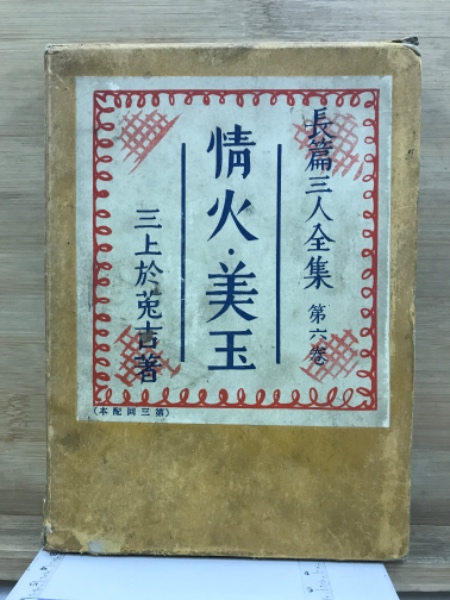 長篇三人全集 第六巻
情火・美玉
三上於菟吉著
(第三回配本)